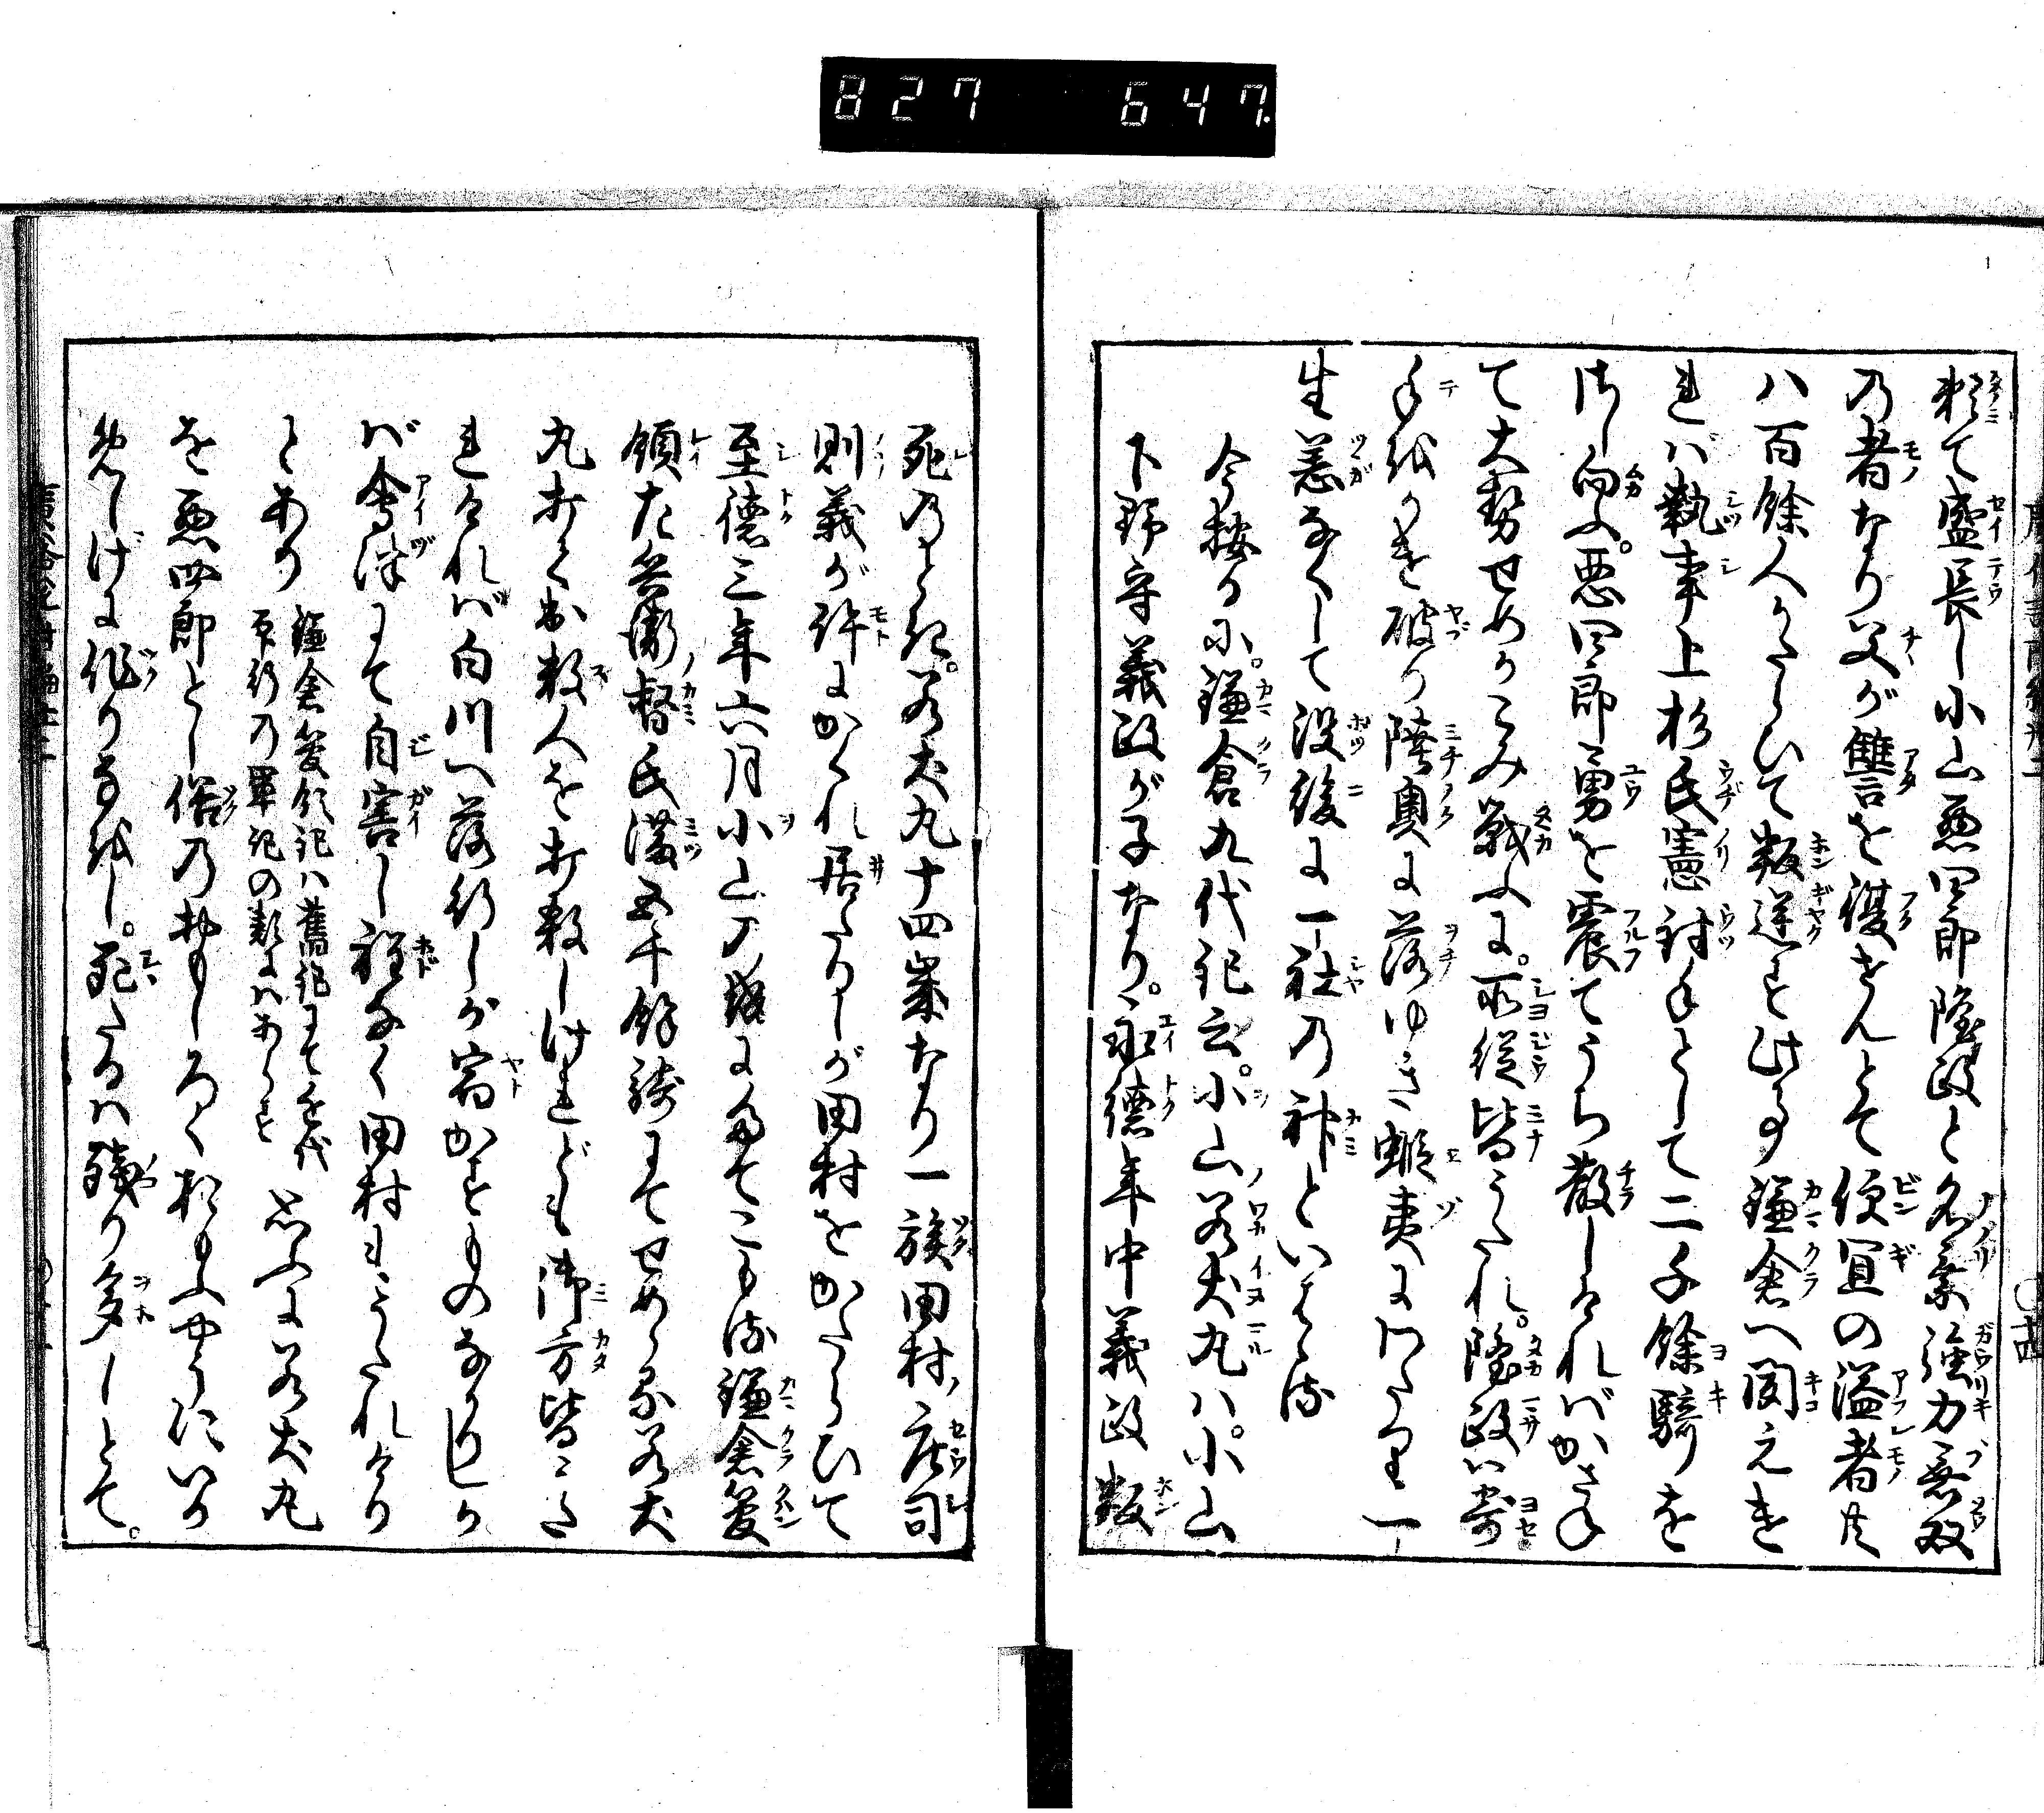 827 647.
頓て盛長し小山悪四郎隆政と名乗強力無双
の者なり父が讐を復さんとて便宜の溢者共
八百餘人かたらひて叛逆す此事鎌倉へ聞えけ
れバ執事上杉氏憲討手として二千餘騎を
さし向ふ。悪四郎勇を震てうち散しけれバかさね
て大勢せめかこみ戦ふに。所従皆うたれ。隆政ハ寄
手のかこミを破り陸奥に落ゆき蝦夷にわたり一
生恙なくして没後に一社の神といはゝる
今按るに。鎌倉九代記云。小山若犬丸ハ。小山
下野守義政が子なり。永徳年中義政叛
死のとき。若犬丸十四歳なり一族田村庄司
則義が許にかくれ居たりしが田村をかたらひて
至徳三年六月小山の城に出てこもる鎌倉管
領左兵衛督氏満五千餘騎にてせめらる若犬
丸打て出数人を打殺しけれども御方皆こと
れけれバ白川へ落行しが宿かすものなかりしか
バ會津にて自害し程なく田村もうたれけり
とあり
鎌倉管領記ハ舊記にて近代
下行の軍記の類にハあらず
思ふに若犬丸
を悪四郎とし俗のおもしろくおもふやうにいひ
めしげに作りなせし。死たるハ残り多しとて。